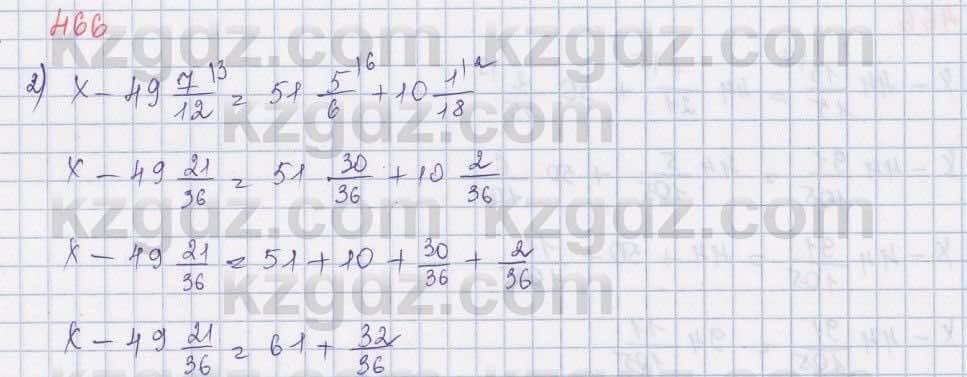 466
2) x - 49 7/12 |3 = 51 5/6 |6 + 10 1/18 |2
x - 49 21/36 = 51 30/36 + 10 2/36
x - 49 21/36 = 51 + 10 + 30/36 + 2/36
x - 49 21/36 = 61 + 32/36
kzgdz.com
kzgdz.com
kzgdz.com
kzgdz.com
kzgdz.com
kzgdz.com